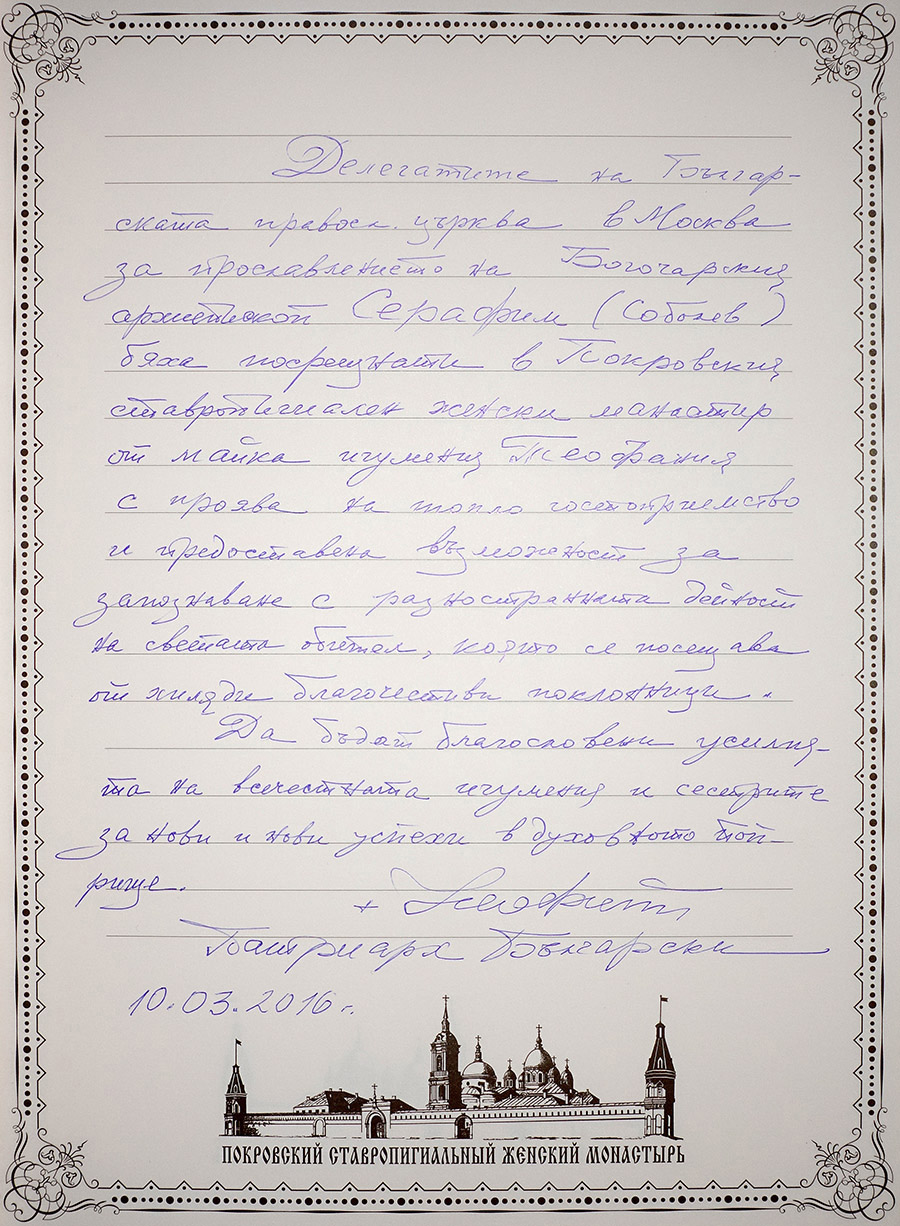 Делегатите на Българ-
ската правосл. църква в Москва
за прославлението на Богочарския
архиепископ Серафим (Соболев)
бяха посрещнати в Покровския
ставропигиален женски манастир
от майка игумения Теофания
с проява на топло гостоприемство
и предоставена възможност за
запознаване с разностранната дейност
на светата обител, която се посещава
от хиляди благочестиви поклонници.
Да бъдат благословени усилия-
та на всечестната игумения и сестрите
за нови и нови успехи в духовното поп-
рище.
+ Неофит
Патриарх Български
10.03.2016 г.
ПОКРОВСКИЙ СТАВРОПИГИАЛЬНЫЙ ЖЕНСКИЙ МОНАСТЫРЬ